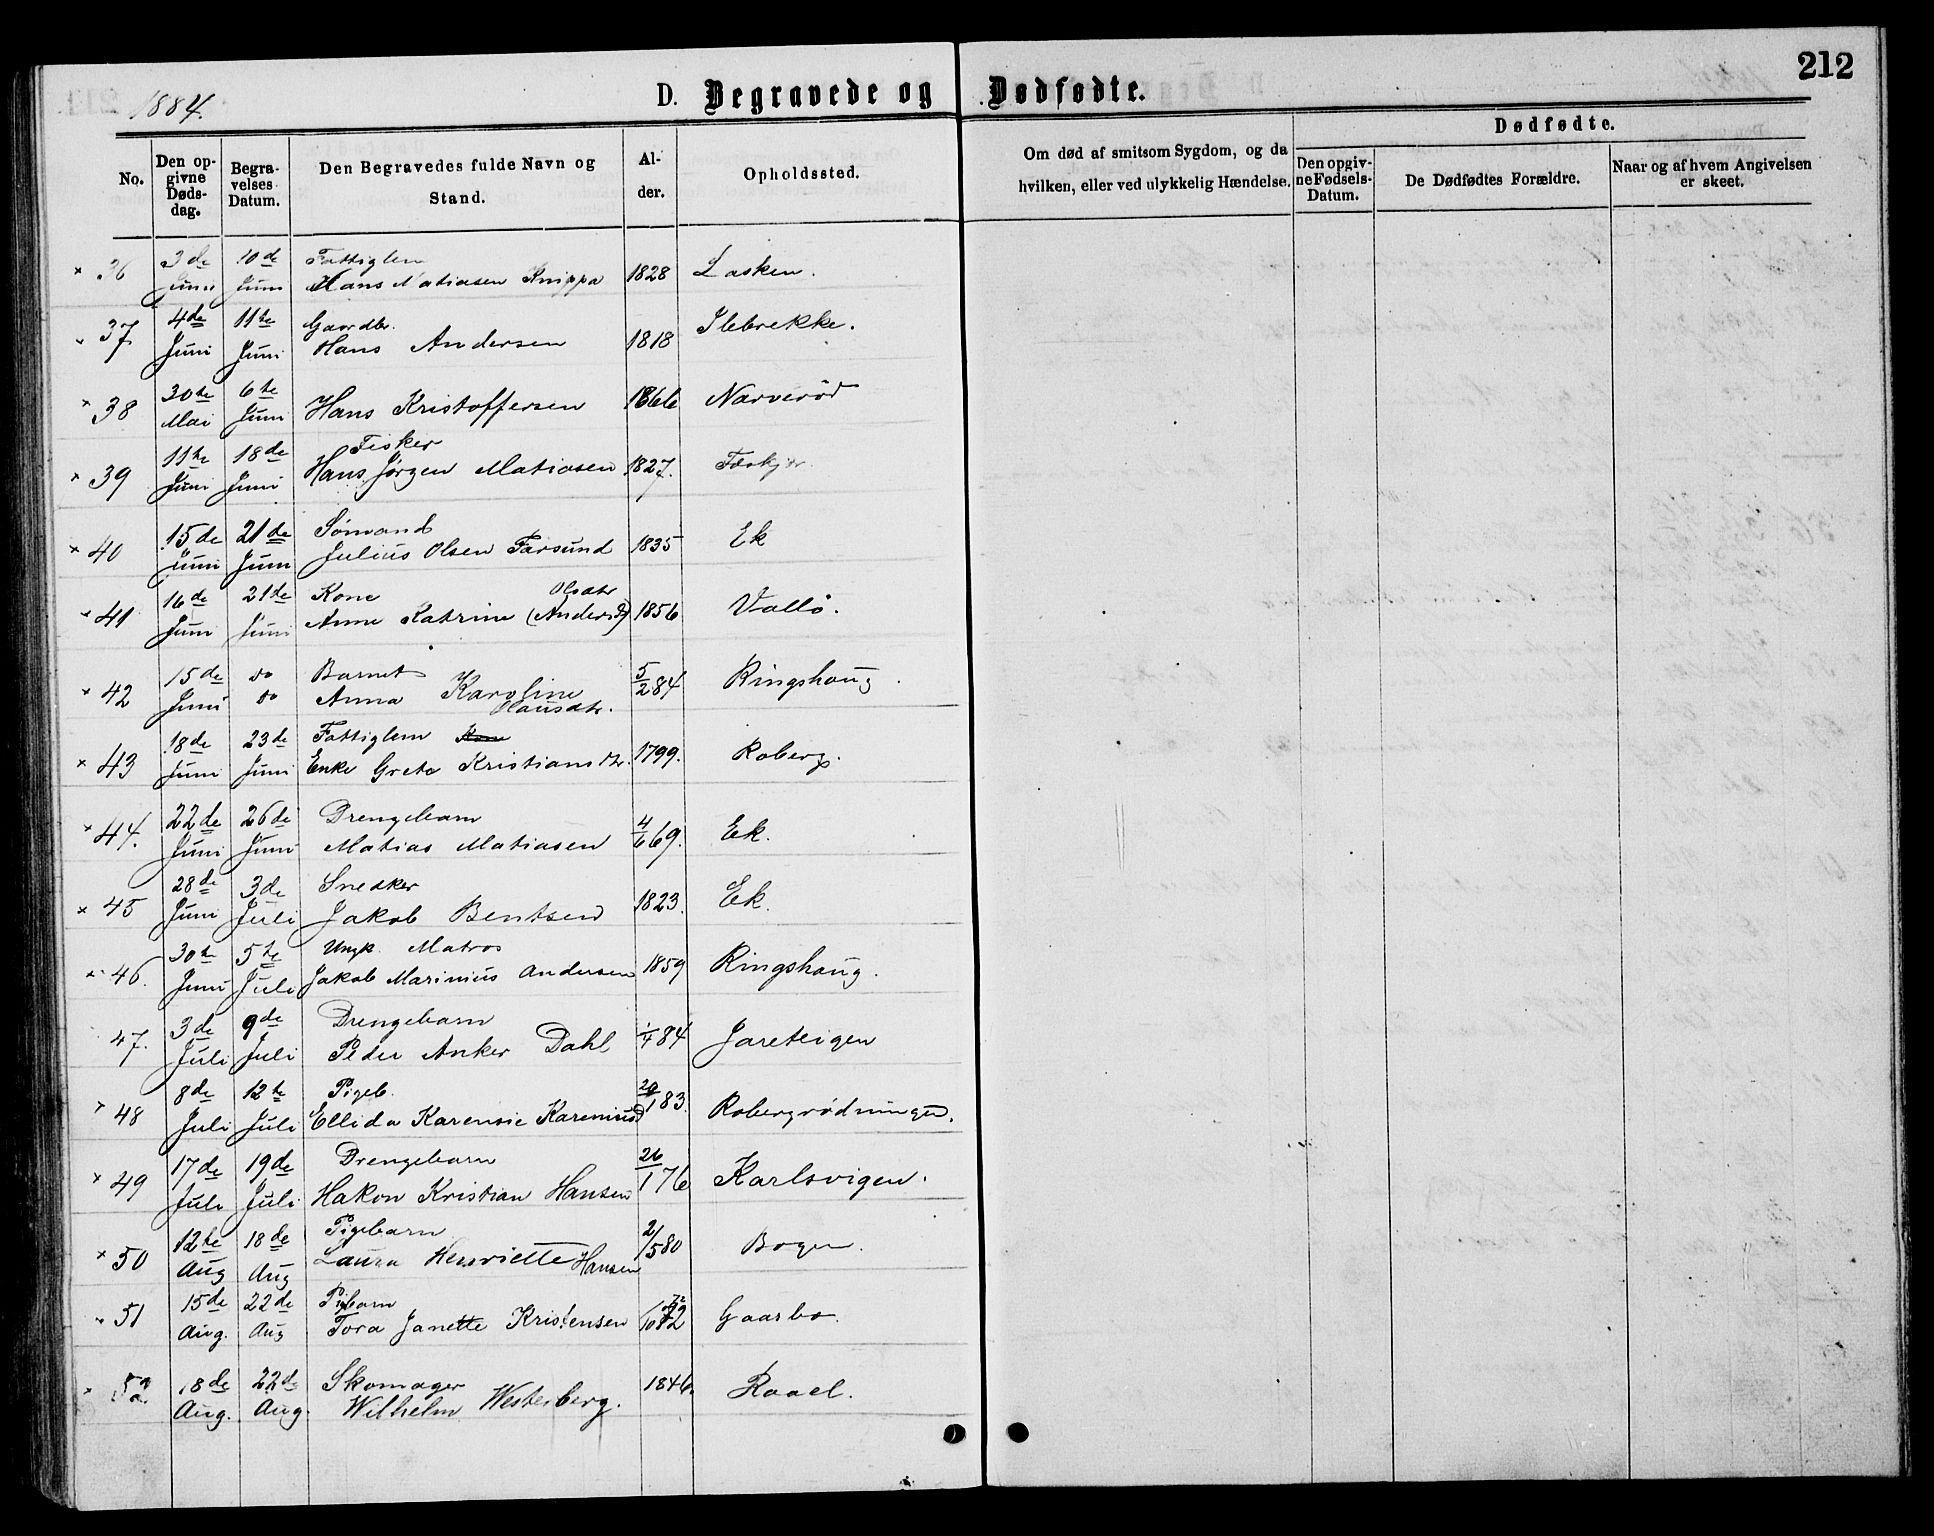 212
1884.
D. Begravede og Dødfødte.
No.
Den opgivne Dødsdag.
Begravelses Datum.
Den Begravedes fulde Navn og Stand.
Alder.
Opholdssted.
Om død af smitsom Sygdom, og da hvilken, eller ved ulykkelig Hændelse.
Dødfødte.
Den opgivne Fødsels-Datum.
De Dødfødtes Forældre.
Naar og af hvem Angivelsen er skeet.
36 3de Juni 10de Juni Fattiglem Hans Matiasen Knippa 1828 Lasken.
37 4de Juni 11te Juni Gaardbr. Hans Andersen 1818 Ilebrekke.
38 30te Mai 6te Juni Hans Kristoffersen 1866 Narverød
39 11te Juni 18de Juni Fisker Hans Jørgen Matiasen 1827.
40 15de Juni 21de Juni Sømand Julius Olsen Farsund 1835 Ek
41 16de Juni 21de Juni Kone Anne Katrine Olsdtr (Anders D) 1856 Vallö.
42 15de Juni do do Barnet Anna Karoline Hansdtr. 5/2 84 Ringshoug.
43 18de Juni 23de Juni Fattiglem Kone Enke Grete Kristiansdtr. 1799. Roberg.
44. 22de Juni 26de Juni Drengebarn Matias Matiasen 4/6 69. Ek.
45 28de Juni 3de Juli Snedker Jakob Bentsen 1823. Ek.
46. 30te Juni 5te Juli Ungk. Matros Jakob Marinius Andersen 1859 Ringshoug.
47. 3de Juli 9de Juli Drengebarn Peder Anker Dahl 1/4 84 Jareteigen
48 8de Juli 12te Juli Pigeb. Ellida Karensie Karenius D 20/1 83. Robergrødningen.
49 17de Juli 19de Juli Drengebarn Hakon Kristian Hansen 26/1 76 Karlsvigen.
50 12te Aug 18de Aug Pigebarn Laura Henriette Hansen 2/5 80 Bogen.
51 15de Aug. 22de Aug Pigbarn Tora Janette Kristensen 72 Gaarbo.
52. 18de Aug. 22de Aug. Skomager Wilhelm Westerberg. 1846. Raael.